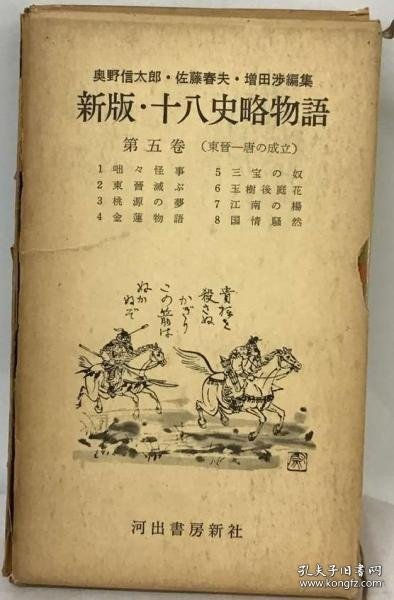 奥野信太郎・佐藤春夫・増田渉編集
新版・十八史略物語
第五巻（東晋―唐の成立）
1 咄々怪事
2 東晉滅ぶ
3 桃源の夢
4 金蓮物語
5 三宝の奴
6 玉樹後庭花
7 江南の楊
8 国情騒然
貴様を
殺さぬ
かぎり
この箭は
ぬか
ぬぞ
河出書房新社
孔夫子旧书网
www.kongfz.com